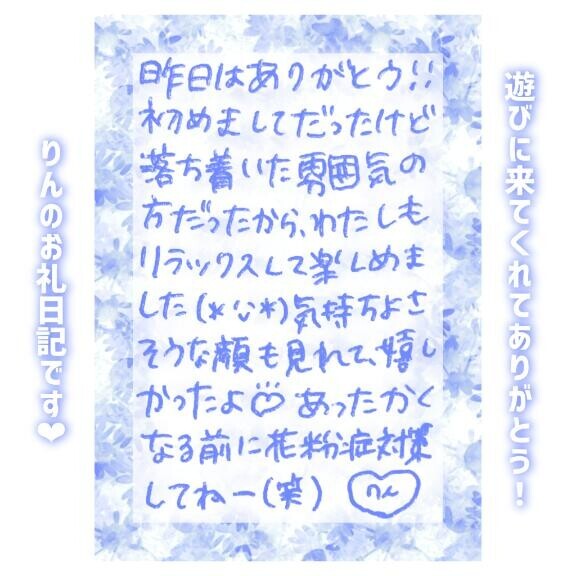 遊びに来てくれてありがとう！
昨日はありがとう!!
初めましてだったけど
落ち着いた雰囲気の
方だったから、わたしも
リラックスして楽しめま
した(*ˊᵕˋ*)気持ちよさ
そうな顔も見れて、嬉し
かったよ♡あったかく
なる前に花粉症対策
してねー(笑)
りん
りんのお礼日記です❤